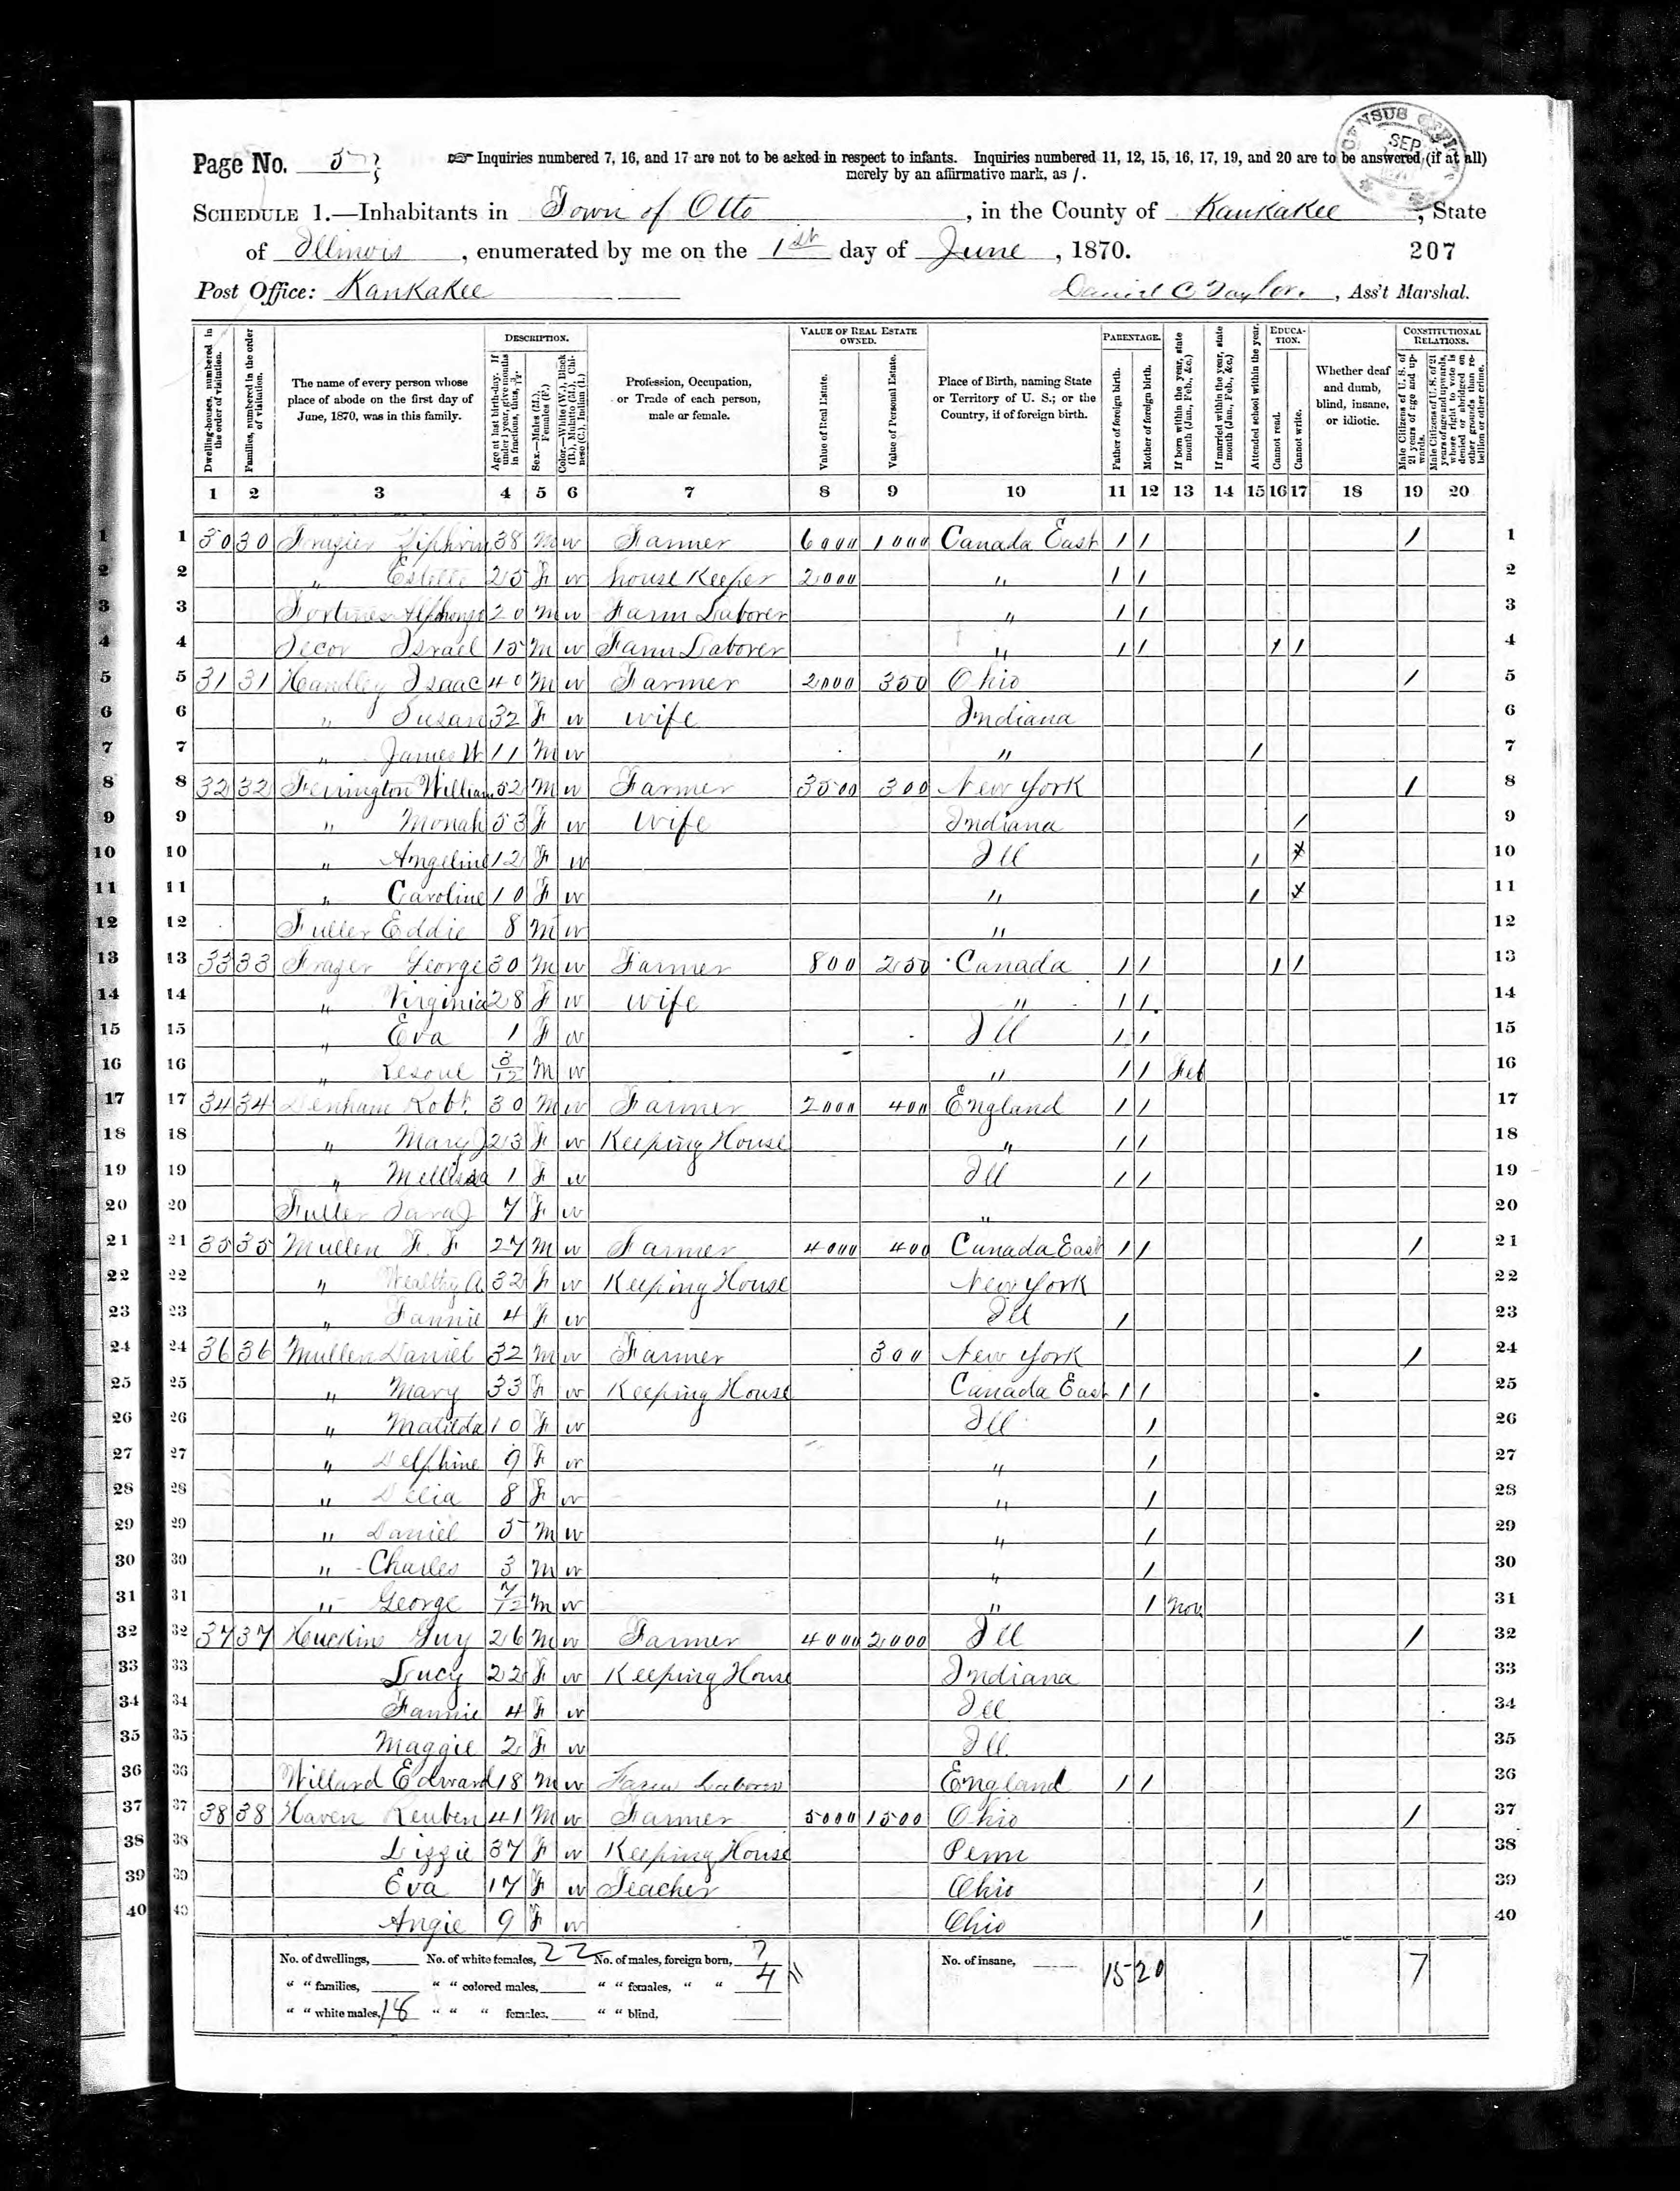 Page No. 5
☞ Inquiries numbered 7, 16, and 17 are not to be asked in respect to infants. Inquiries numbered 11, 12, 15, 16, 17, 19, and 20 are to be answered (if at all)
merely by an affirmative mark, as /.
CENSUS OFFICE SEP
SCHEDULE 1.—Inhabitants in Town of Otto, in the County of Kankakee, State
of Illinois, enumerated by me on the 1st day of June, 1870. 207
Post Office: Kankakee Daniel C Taylor, Ass't Marshal.
Dwelling-houses, numbered in the order of visitation.
Families, numbered in the order of visitation.
The name of every person whose place of abode on the first day of June, 1870, was in this family.
DESCRIPTION.
Age at last birth-day. If under 1 year, give months in fractions, thus, 3/12
Sex.—Males (M.), Females (F.)
Color.—White (W.), Black (B.), Mulatto (M.), Chinese (C.), Indian (I.)
Profession, Occupation, or Trade of each person, male or female.
VALUE OF REAL ESTATE OWNED.
Value of Real Estate.
Value of Personal Estate.
Place of Birth, naming State or Territory of U. S.; or the Country, if of foreign birth.
PARENTAGE.
Father of foreign birth.
Mother of foreign birth.
If born within the year, state month (Jan., Feb., &c.)
If married within the year, state month (Jan., Feb., &c.)
Attended school within the year.
EDUCATION.
Cannot read.
Cannot write.
Whether deaf and dumb, blind, insane, or idiotic.
CONSTITUTIONAL RELATIONS.
Male Citizens of U. S. of 21 years of age and upwards.
Male Citizens of U. S. of 21 years of age and upwards, whose right to vote is denied or abridged on other grounds than rebellion or other crime.
1 2 3 4 5 6 7 8 9 10 11 12 13 14 15 16 17 18 19 20
1 1 30 30 Frazier 38 M W Farmer 6000 1000 Canada East / / / 1
2 2 " Estelle 25 F W house Keeper 2000 " / / 2
3 3 20 M W Farm Laborer " / / 3
4 4 Israel 15 M W Farm Laborer " / / / / 4
5 5 31 31 Handley Isaac 40 M W Farmer 2000 350 Ohio / 5
6 6 " Susan 32 F W wife Indiana 6
7 7 " James W 11 M W " / 7
8 8 32 32 William 52 M W Farmer 3500 300 New York / 8
9 9 " Monah 53 F W wife Indiana / 9
10 10 " Angeline 12 F W Ill / 10
11 11 " Caroline 10 F W " / 11
12 12 Fuller Eddie 8 M W " 12
13 13 33 33 Frazer George 30 M W Farmer 800 250 Canada / / / / 13
14 14 " Virginia 28 F W wife " / / 14
15 15 " Eva 1 F W Ill / / 15
16 16 " 3/12 M W " / / Feb 16
17 17 34 34 Denham Robt. 30 M W Farmer 2000 400 England / / 17
18 18 " Mary J 23 F W Keeping House " / / 18
19 19 " Mellissa 1 F W Ill / / 19
20 20 Fuller Sara J 7 F W " 20
21 21 35 35 Mullen F. F 27 M W Farmer 4000 400 Canada East / / / 21
22 22 " Wealthy A. 32 F W Keeping House New York 22
23 23 " Fannie 4 F W Ill / 23
24 24 36 36 Mullen Daniel 32 M W Farmer 300 New York / 24
25 25 " Mary 33 F W Keeping House Canada East / / 25
26 26 " Matilda 10 F W Ill / 26
27 27 " Delphine 9 F W " / 27
28 28 " Delia 8 F W " / 28
29 29 " Daniel 5 M W " / 29
30 30 " Charles 3 M W " / 30
31 31 " George 7/12 M W " / Nov 31
32 32 37 37 Huckins Guy 26 M W Farmer 4000 2000 Ill / 32
33 33 Lucy 22 F W Keeping House Indiana 33
34 34 Fannie 4 F W Ill 34
35 35 Maggie 2 F W Ill. 35
36 36 Willard Edward 18 M W Farm Laborer England / / 36
37 37 38 38 Haven Reuben 41 M W Farmer 5000 1500 Ohio / 37
38 38 Lizzie 37 F W Keeping House Penn 38
39 39 Eva 17 F W Teacher Ohio / 39
40 40 Angie 9 F W Ohio / 40
No. of dwellings, No. of white females, 22 No. of males, foreign born, 7 No. of insane, 15 20 7
" " families, " " colored males, " " females, " " 4
" " white males, 18 " " " females, " " blind,